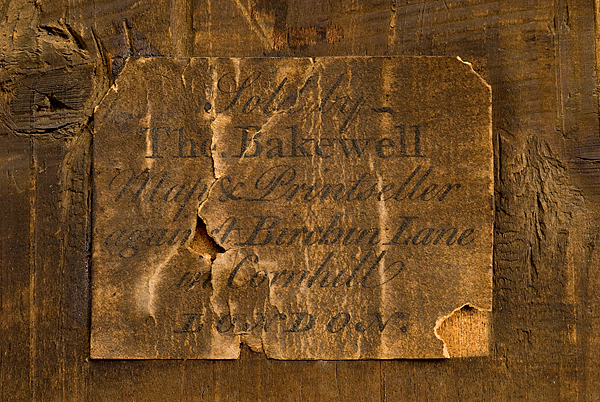 Sold by
Tho. Bakewell
Map & Printseller
against Birchin Lane
in Cornhill
LONDON.